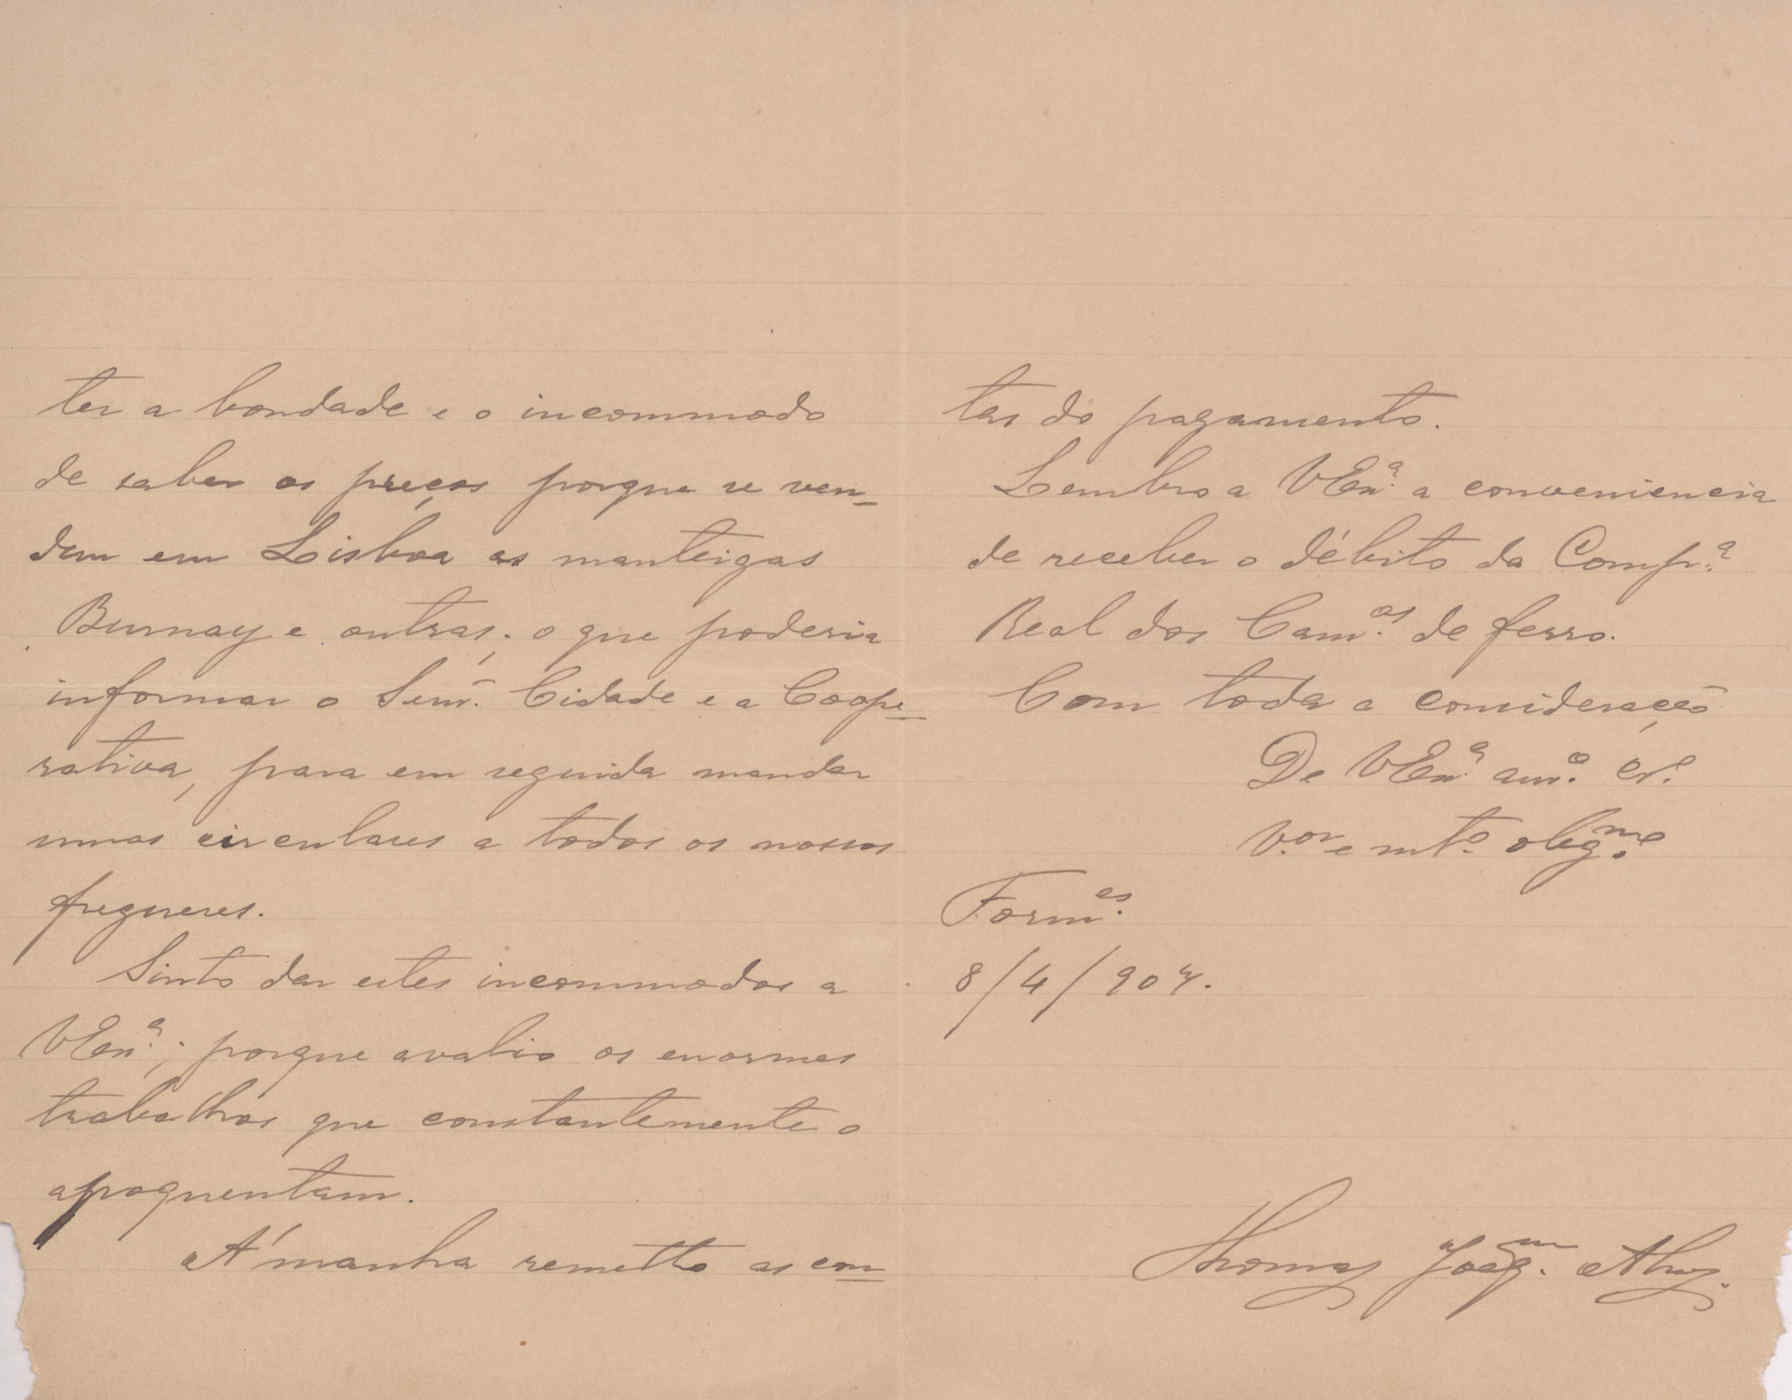 ter a bondade e o incommodo
de saber os preços porque se ven=
dem em Lisboa as manteigas
Burnay e outras; o que poderia
informar o Senr. Cidade e a Coope=
rativa, para em seguida mandar
umas circulares a todos os nossos
freguezes.
Sinto dar estes incommodos a
VExª.; porque avalio os enormes
trabalhos que constantemente o
apoquentam.
A'manha remetto as con=
tas do pagamento.
Lembro a VExª. a conveniencia
de receber o débito da Compª.
Real dos Camos. de ferro.
Com toda a consideração
De VExª. amº. crº.
V.or e mtº. obigmo.
Formes.
8/4/907.
Thomaz Joaqm. Alvs.